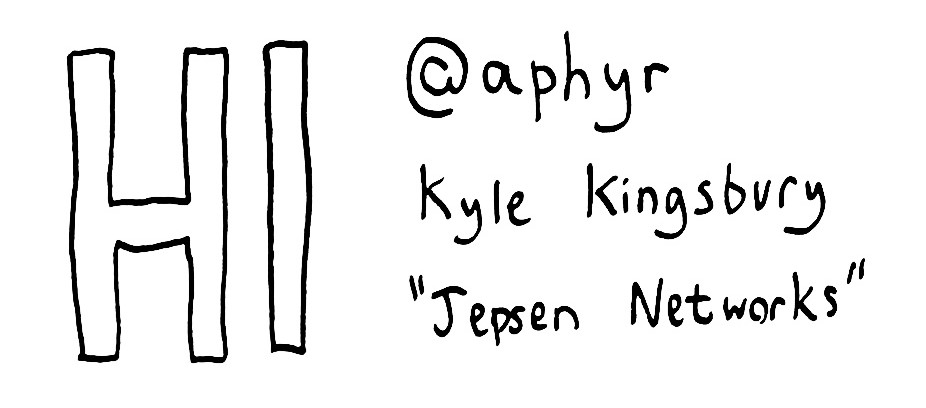 HI
@aphyr
Kyle Kingsbury
"Jepsen Networks"